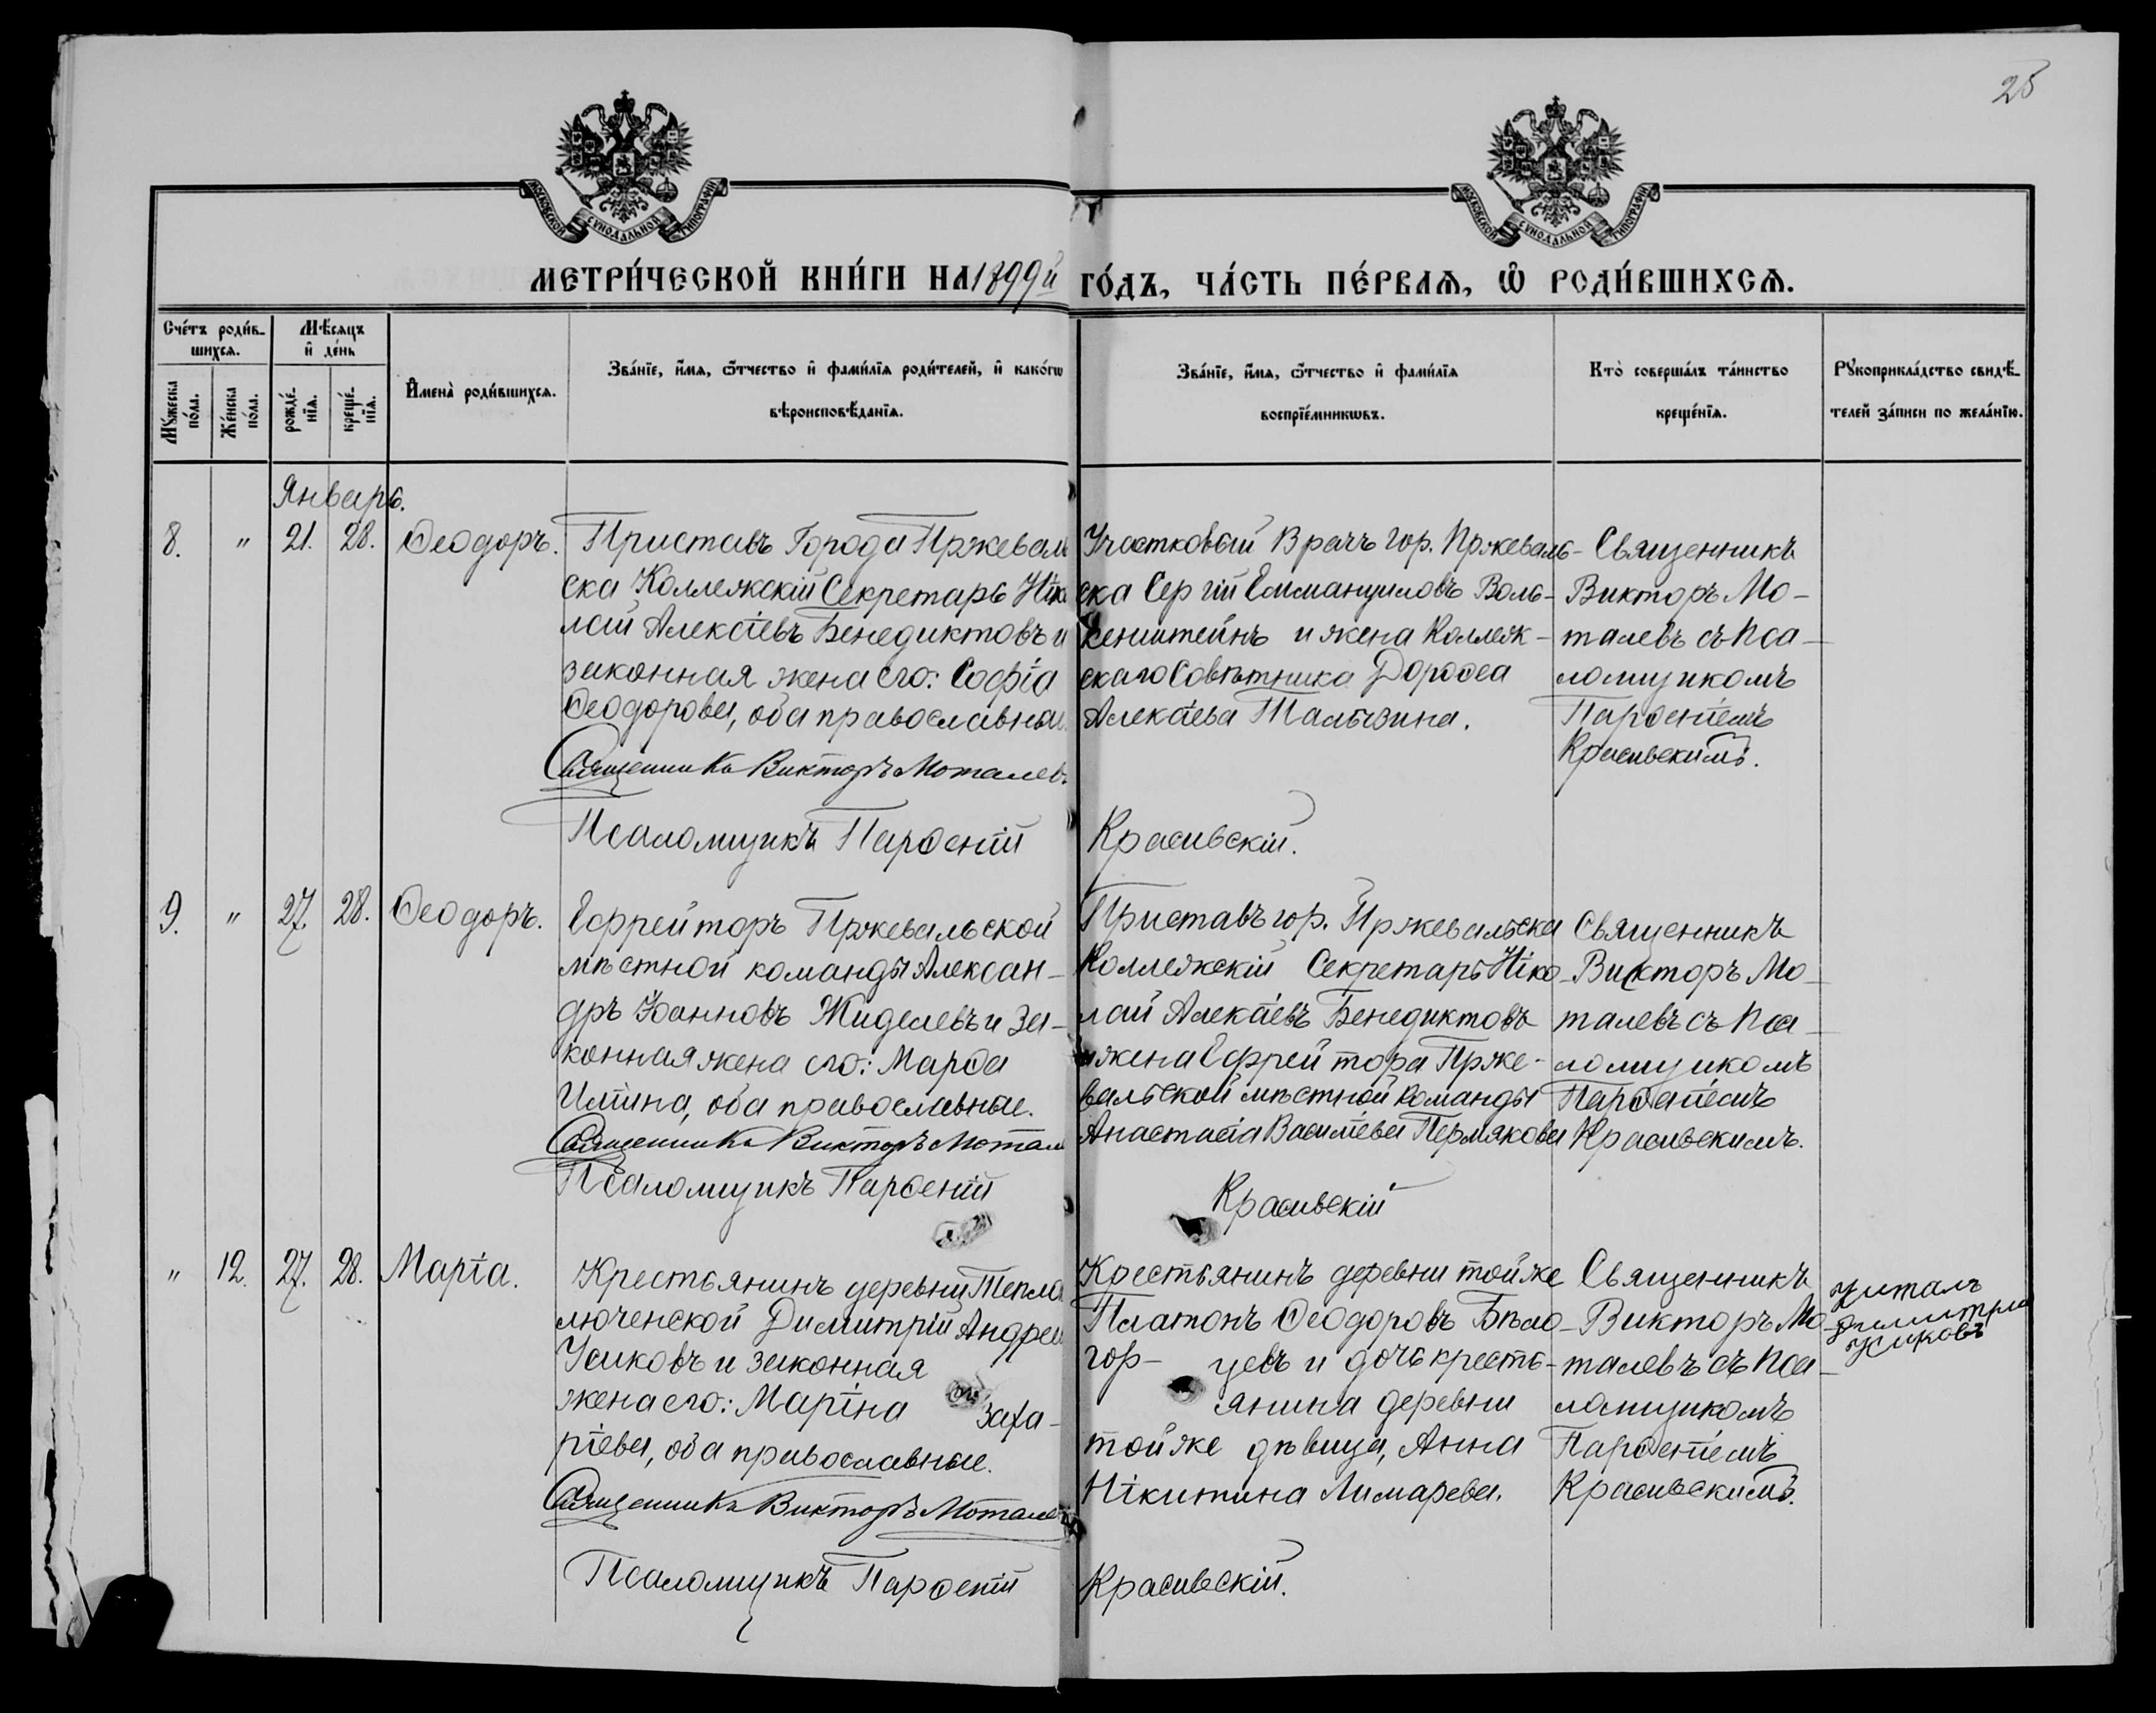 25
МОСКОВСКОЙ СУНОДАЛЬНОЙ ТИПОГРАФИИ
МОСКОВСКОЙ СУНОДАЛЬНОЙ ТИПОГРАФИИ
МЕТРИ́ЧЕСКОЙ КНИ́ГИ НА 1899й ГО́ДЪ, ЧА́СТЬ ПЕ́РВАѦ, Ѡ҆ РОДИ́ВШИХСѦ.
Сче́тъ роди́в-
шихсѧ.
Мѣ́сяцъ
и҆ де́нь
Мꙋ́жеска
по́ла.
Же́нска
по́ла.
рожде́-
нїѧ.
креще́-
нїѧ.
И҆мена̀ роди́вшихсѧ.
Зва́нїе, и҆́мѧ, ѻ҆́тчество и҆ фами́лїѧ роди́телей, и҆ како́гѡ
вѣроисповѣ́данїѧ.
Зва́нїе, и҆́мѧ, ѻ҆́тчество и҆ фами́лїѧ
воспрїе́мникѡвъ.
Кто̀ соверша́лъ та́инство
креще́нїѧ.
Рꙋкоприкла́дство свидѣ́-
телей за́писи по жела́нїю.
Январь.
8. " 21. 28. Ѳеодоръ.
Приставъ Города Пржеваль
ска Коллежскій Секретарь Нико
лай Алексіевъ Бенедиктовъ и
законная жена его: Софія
Ѳеодорова, оба православные.
Священникъ Викторъ Моталевъ
Псаломщикъ Парѳеній
Участковый Врачъ гор. Пржеваль-
ска Сергій Еммануиловъ Воль-
кенштейнъ и жена Коллеж-
скаго Совѣтника Дороѳеа
Алексіева Тальзина.
Красивскій.
Священникъ
Викторъ Мо-
талевъ съ Пса-
ломщикомъ
Парѳеніемъ
Красивскимъ.
9. " 27. 28. Ѳеодоръ.
Ефрейторъ Пржевальской
мѣстной команды Алексан-
дръ Іоанновъ Жиделевъ и за-
конная жена его: Марѳа
Иліина, оба православные.
Священникъ Викторъ Мотал
Псаломщикъ Парѳеній
Приставъ гор. Пржевальска
Коллежскій Секретарь Нико-
лай Алексіевъ Бенедиктовъ
и жена Ефрейтора Прже-
вальской мѣстной команды
Анастасія Василіева Пермякова
Красивскій
Священникъ
Викторъ Мо-
талевъ съ Пса-
ломщикомъ
Парѳеніемъ
Красивскимъ.
" 12. 27. 28. Марія.
Крестьянинъ деревни Тепло
люченской Димитрій Андреев
Усиковъ и законная
жена его: Маріна Заха-
ріева, оба православные.
Священникъ Викторъ Моталев
Псаломщикъ Парѳеній
Крестьянинъ деревни той же
Платонъ Ѳеодоровъ Бѣло-
гор- цевъ и дочь кресть-
янина деревни
той же дѣвица, Анна
Нікитина Лимарева.
Красивскій.
Священникъ
Викторъ Мо-
талевъ съ Пса-
ломщикомъ
Парѳеніемъ
Красивскимъ.
читалъ
Усиковъ